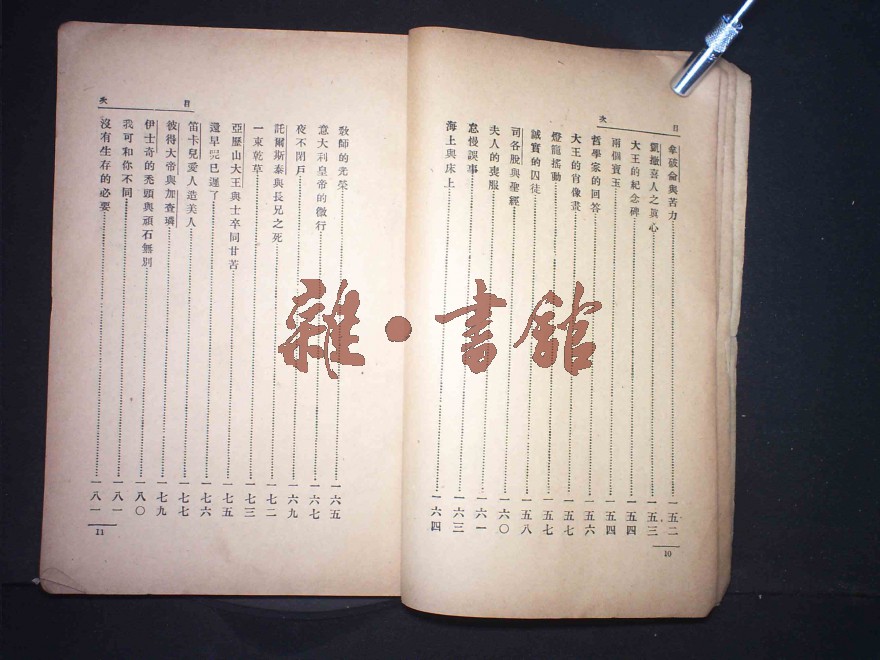 目 次
拿破侖與苦力 一五二
凱撒喜人之眞心 一五三
大王的紀念碑 一五四
兩個寶玉 一五四
哲學家的回答 一五六
大王的肖像畫 一五七
燈籠搖動 一五七
誠實的囚徒 一五八
司各脫與聖經 一六〇
夫人的喪服 一六一
怠慢誤事 一六三
海上與床上 一六四
10
目 次
敎師的光榮 一六五
意大利皇帝的微行 一六七
夜不閉戶 一六九
託爾斯泰與長兄之死 一七二
一束乾草 一七三
亞歷山大王與士卒同甘苦 一七五
還早哭已遲了 一七六
笛卡兒愛人造美人 一七七
彼得大帝與加查璘 一七九
伊士奇的禿頭與頑石無別 一八〇
我可和你不同 一八一
沒有生存的必要 一八一
11
雜·書館